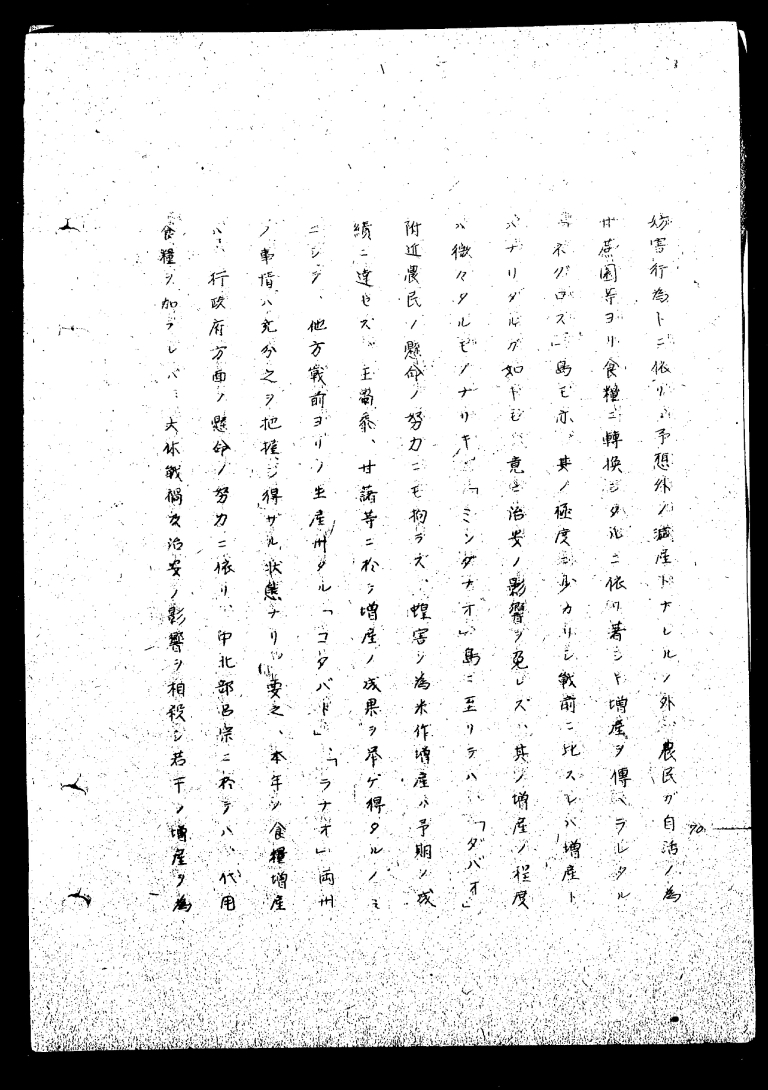 妨害行為トニ依リ、予想外ノ減産トナレルノ外、農民ガ自活ノ為
甘蔗園等ヨリ食糧ニ転換シタルニ依リ著シキ増産ヲ傳ヘラレタル
「ネグロス」島モ亦、其ノ極度ニ少カリシ戦前ニ比スレバ増産ト
ハナリタルガ如キモ、竟ニ治安ノ影響ヲ免レズ、其ノ増産ノ程度
ハ微々タルモノナリキ、「ミンダナオ」島ニ至リテハ、「ダバオ」
附近農民ノ懸命ノ努力ニモ拘ラズ、蝗害ノ為米作増産ハ予期ノ成
績ニ達セズ、玉蜀黍、甘藷等ニ於テ増産ノ成果ヲ挙ゲ得タルノミ
ニシテ、他方戦前ヨリノ生産州タル「コタバト」、「ラナオ」両州
ノ事情ハ充分之ヲ把握シ得ザル状態ナリ、要之、本年ノ食糧増産
ハ、行政府方面ノ懸命ノ努力ニ依リ、中北部呂宋ニ於テハ、代用
食糧ヲ加フレバ、大体戦禍及治安ノ影響ヲ相殺シ若干ノ増産ヲ為
70